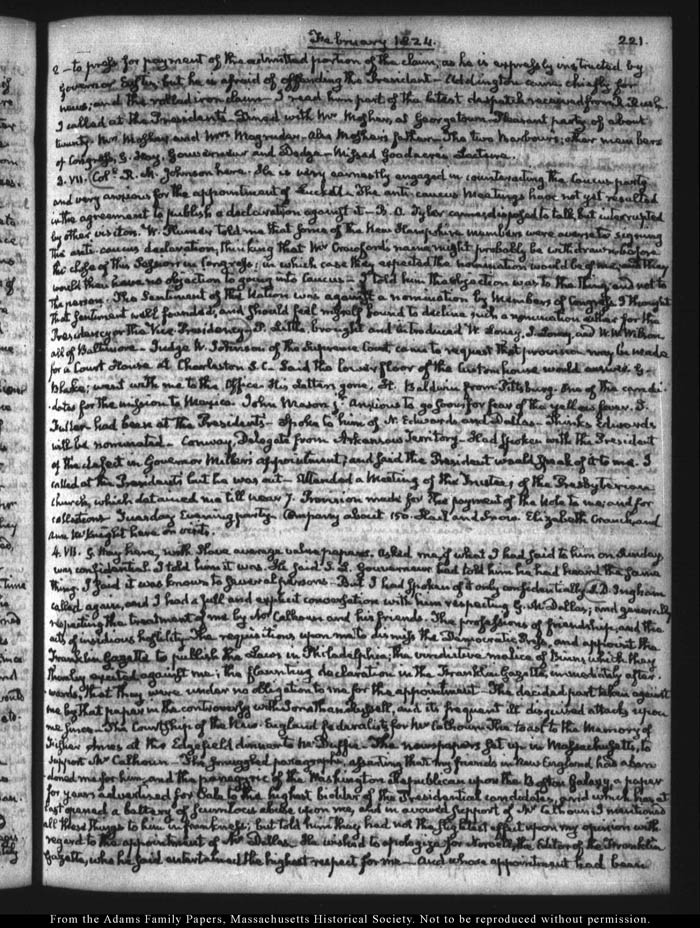 February 1824.
221.
2 — to press for payment of the admitted portion of the claim, as he is expressly instructed by
Governor but he is afraid of offending the President — Addington came chiefly for
news; and the rolled iron claim — I read him part of the latest despatch received from R. Rush.
I called at the Presidents. Dined with Mr at Georgetown — Pleasant party of about
twenty. Mrs and Mrs Magruder. Also father. The two Barbours; other members
of Congress, G. Hay, Gouverneur and Dodge — Missed Goodacres Lecture.
3. VII. Coll. R. M. Johnson here. He is very earnestly engaged in counteracting the Caucus party
and very anxious for the appointment of The anti-caucus Meetings have not yet resulted
in the agreement to publish a declaration against it — B. O. Tyler came disposed to talk, but interrupted
by other visitors. W. Plumer told me that some of the New Hampshire members were averse to signing
the anti-caucus declaration, thinking that Mr Crawford's name might probably be withdrawn before
the close of this Session in Congress; in which case they expected the nomination would be of me, and they
would then have no objection to going into Caucus — I told him the objection was to the thing, and not to
the person. The Sentiment of the Nation was against a nomination by Members of Congress. I thought
that sentiment well founded, and should feel myself bound to decline such a nomination either for the
Presidency or the Vice-Presidency — P. Little brought and introduced W. Loney, and W. W. Wilson
all of Baltimore — Judge W. Johnson of the Supreme Court came to request that provision may be made
for a Court House at Charleston S.C. Said the lower floor of the Custom house would answer. G.
Blake; went with me to the Office. His gone. H. Baldwin from Pittsburg. One of the candi-
dates for the mission to Mexico. John Mason jr. Anxious to go soon, for fear of the yellow fever. T.
Fuller had been at the Presidents — Spoke to him of N. Edwards and Dallas — Thinks Edwards
will be nominated — Conway, Delegate from Arkansas Territory — Had spoken with the President
of the defect in Governor Miller's appointment; and said the President would speak of it to me. I
called at the Presidents but he was out — Attended a Meeting of the Trustees of the Presbyterian
Church, which detained me till near 7. Provision made for the payment of the Note to me, and for
collections. Tuesday Evening party. Company about 150. Hail and Snow. Elizabeth Cranch and
Ann have on visits.
4. VII. G. Hay here, with average value papers. Asked me if what I had said to him on Sunday
was confidential. I told him it was. He said S. L. Gouverneur had told him he had heard the same
thing. I said it was known to several persons. But I had spoken of it only confidentially. S. D. Ingham
called again, and I had a full and explicit conversation with him respecting G. M. Dallas; and generally
respecting the treatment of me by Mr Calhoun and his friends. The professions of friendship, and the
acts of insidious hostility. The requisitions upon me to dismiss the Democratic Press, and appoint the
Franklin Gazette to publish the Laws in Philadelphia; the vindictive malice of Binns which they
thereby excited against me; the flaunting declaration in the Franklin Gazette, immediately after-
wards that they were under no obligation to me for the appointment — The decided part taken against
me by that paper in the controversy with Jonathan Russell, and its frequent ill disguised attacks upon
me since — The Courtship of the New-England federalists for Mr Calhoun — The toast to the Memory of
Fisher Ames at the Edgefield dinner to McDuffie — The newspapers set up in Massachusetts, to
support Mr Calhoun — The smuggled paragraphs, asserting that my friends in New England, had aban-
doned me for him; and the panegyric of the Washington Republican upon the Boston Galaxy, a paper
for years advertised for Sale to the highest bidder of the Presidential candidates, and which has at
last opened a battery of scurrilous abuse upon me, and in avowed support of Mr Calhoun. I mentioned
all these things to him in frankness; but told him they had not the slightest effect upon my opinion with
regard to the appointment of Mr Dallas. He wished to apologize for Norvell, the Editor of the Franklin
Gazette, who he said entertained the highest respect for me — And whose appointment had been
From the Adams Family Papers, Massachusetts Historical Society. Not to be reproduced without permission.